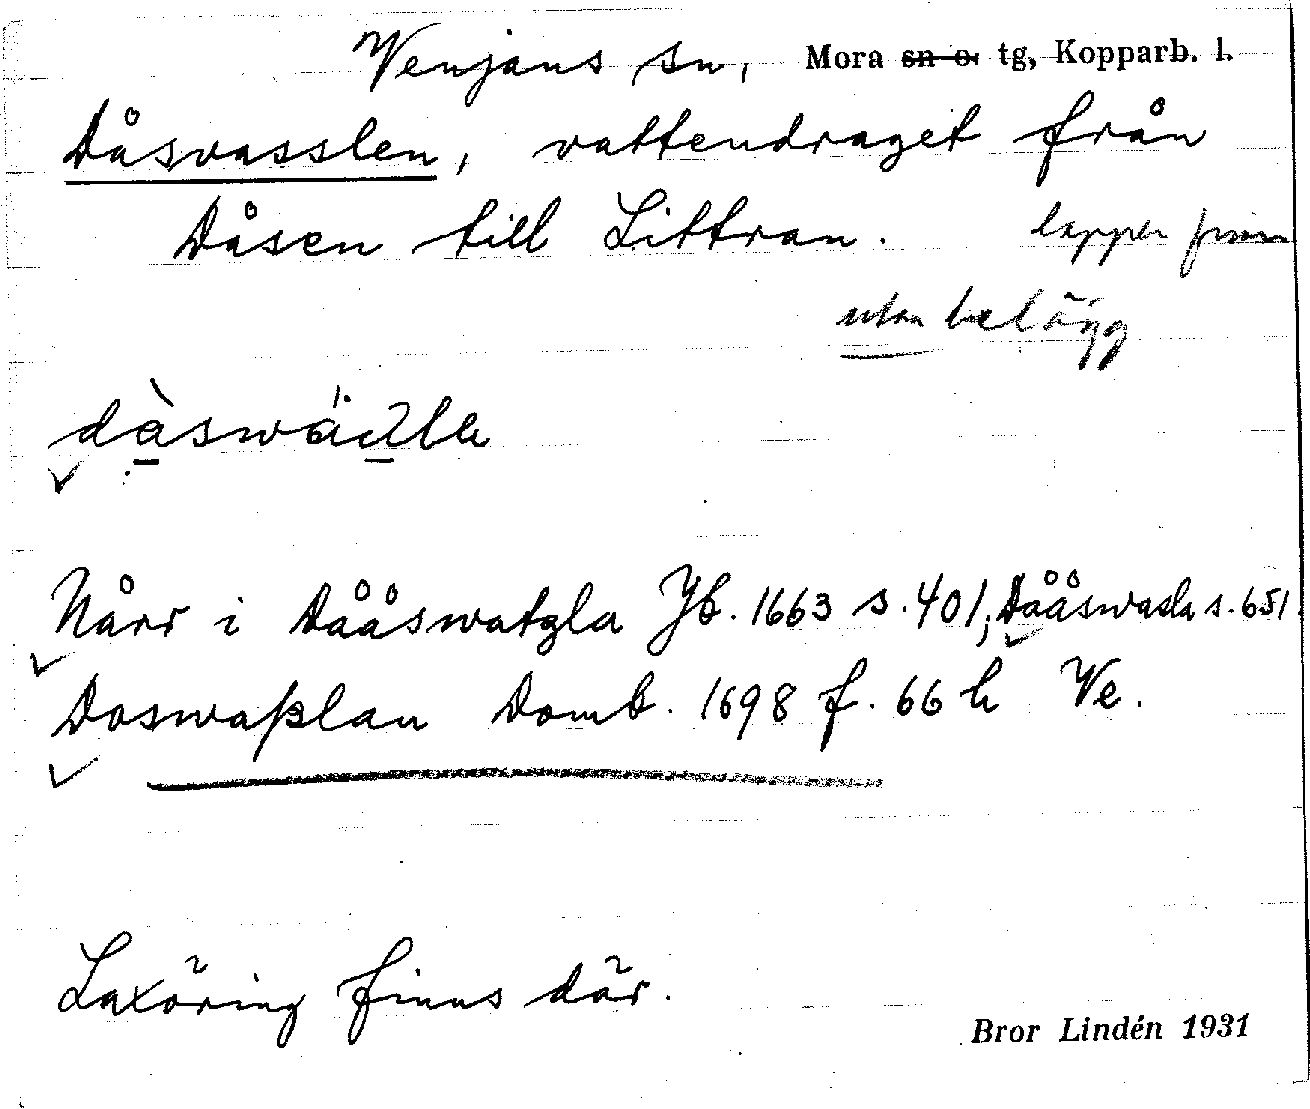 Venjans sn, Mora sn o. tg, Kopparb. l.
Dåsvasslen, vattendraget från
Dåsen till Littran. lapper finn
utan belägg
Nårr i Dååswatzla Jb. 1663 s. 401; Dååswasla s. 651
Doswaßlan Domb. 1698 f. 66 h Ve.
Laxöring finns där.
Bror Lindén 1931